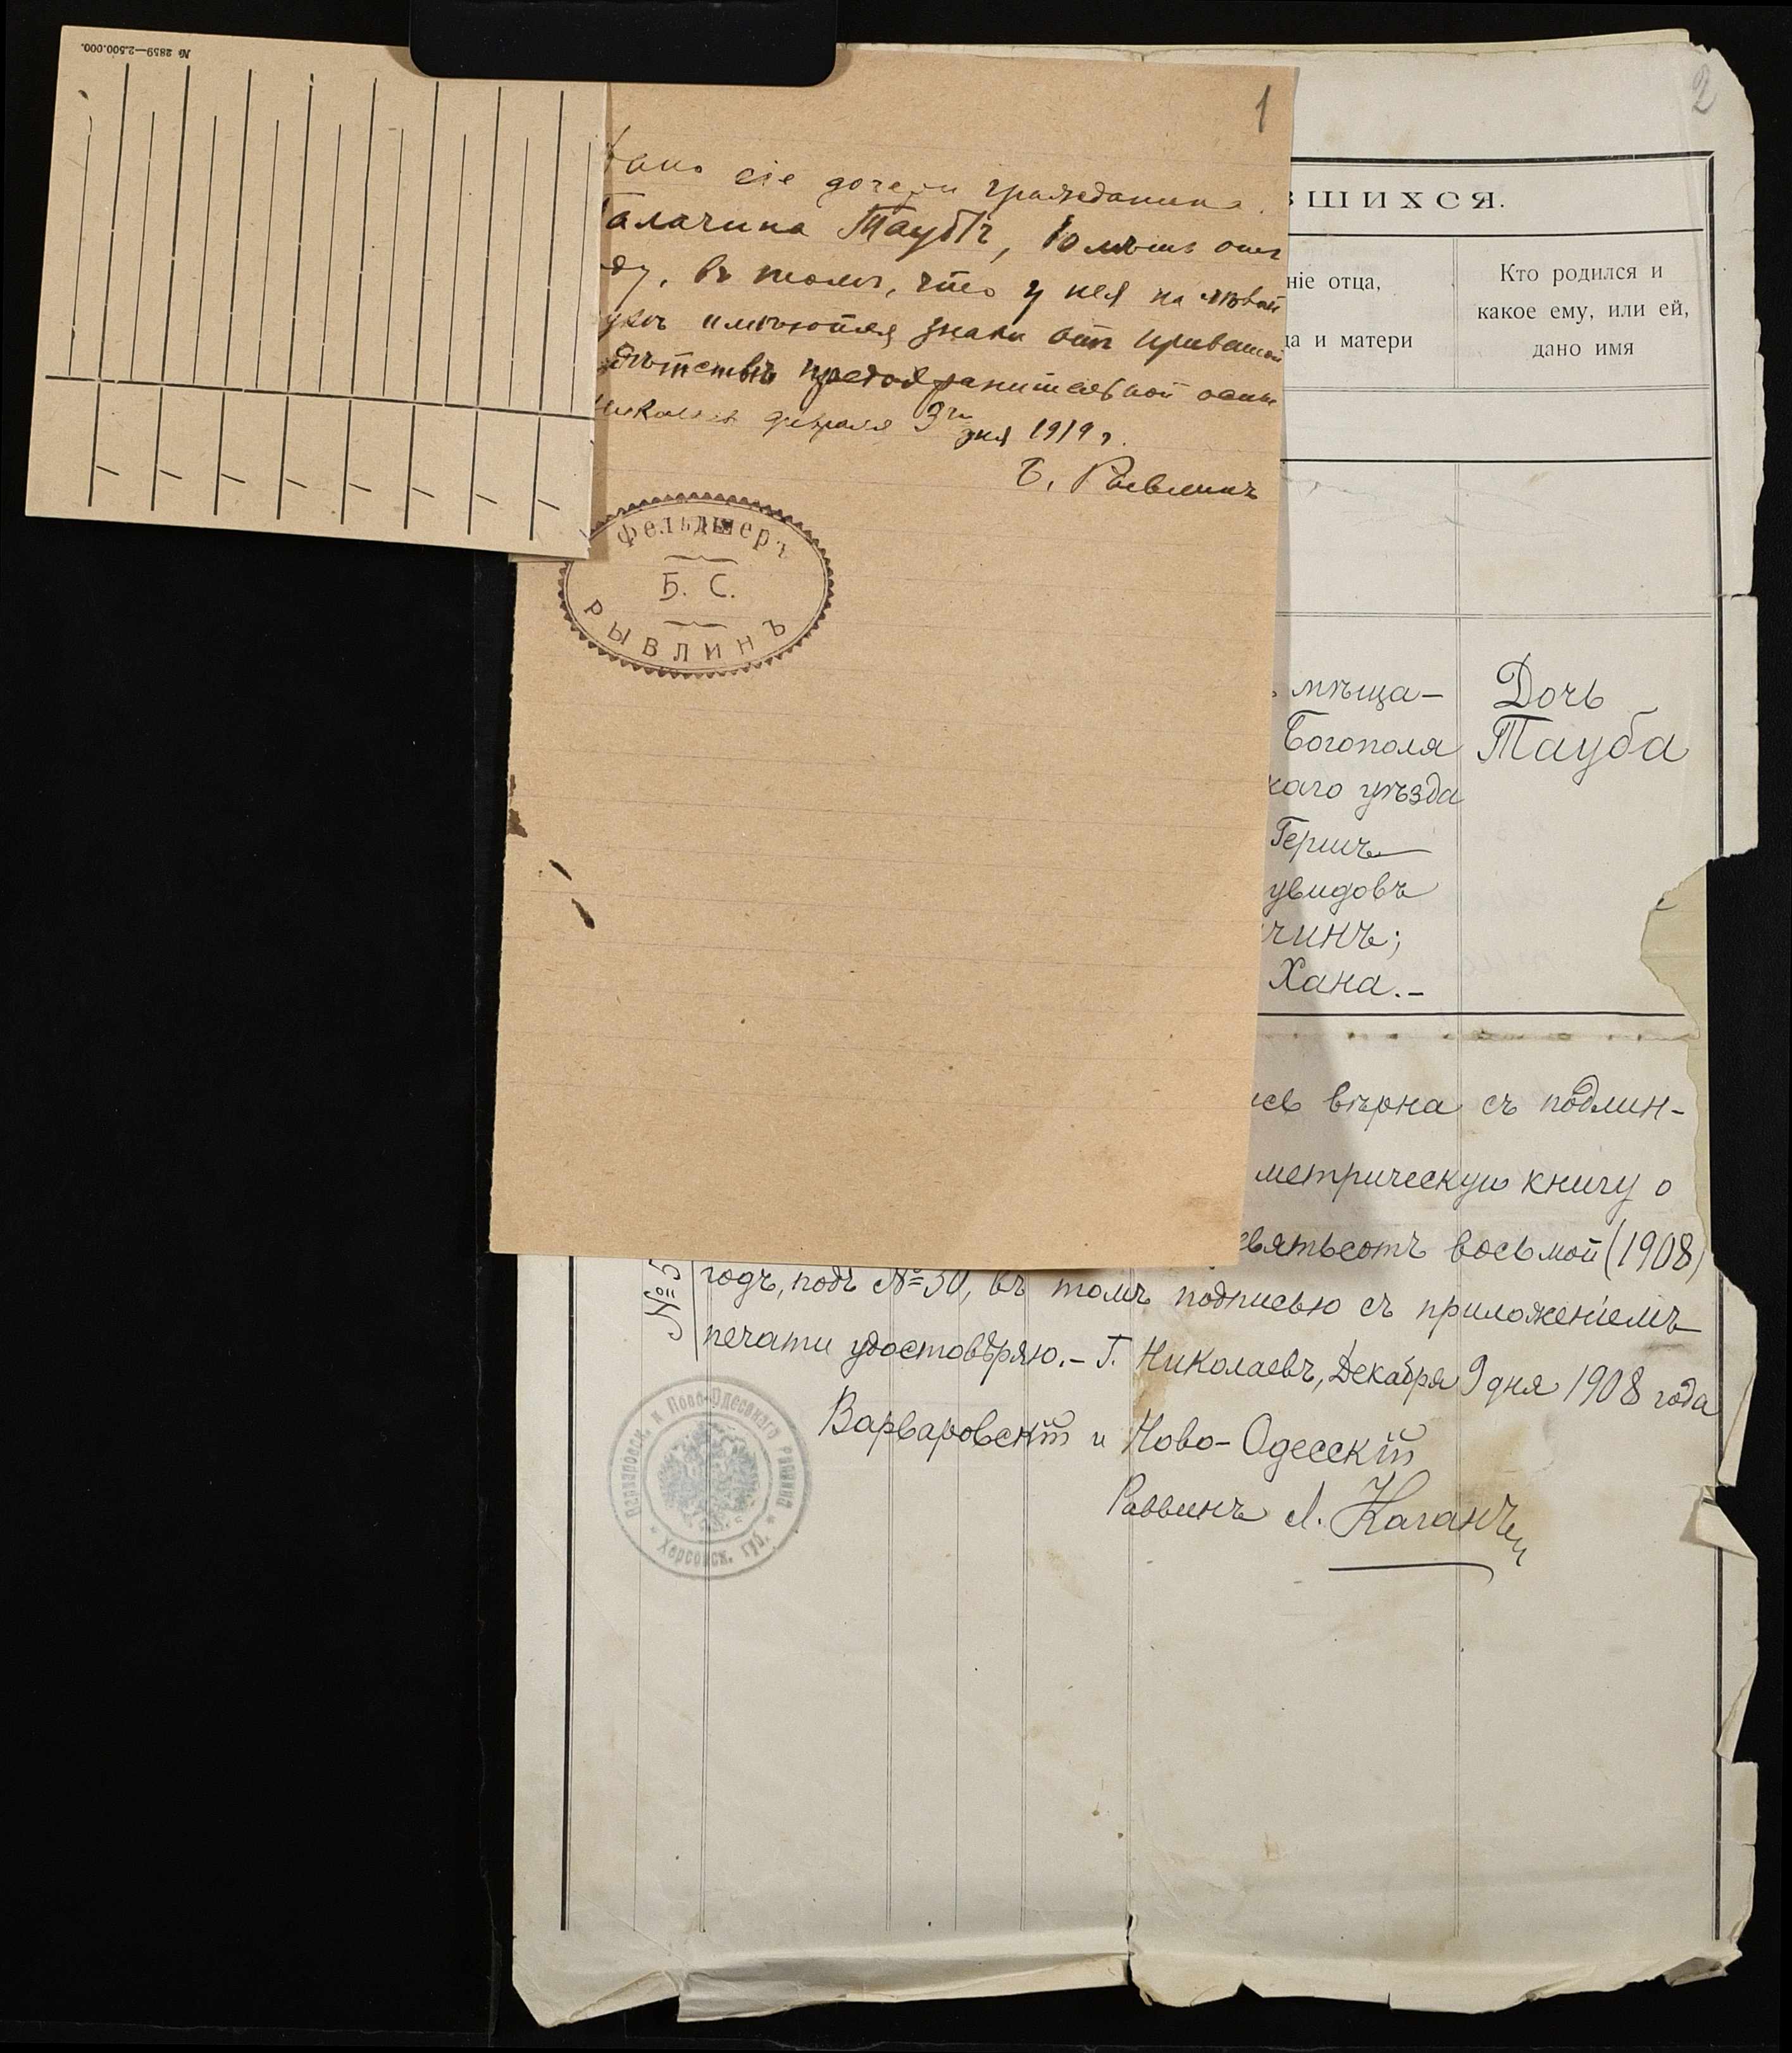 № 2859—2.500.000.
1
Дано сіе дочери гражданина
Галачина Таубѣ, 10 лѣтъ отъ
ду, въ томъ, что у нея на лѣвой
укѣ имѣются знаки отъ привитой
дѣтствѣ предохранительной оспы
Николаевъ февраля 3го дня 1919 г.
Б. Рывлинъ
Фельдшеръ
Б. С.
РЫВЛИНЪ
2
ВШИХСЯ.
ніе отца,
да и матери
Кто родился и
какое ему, или ей,
дано имя
мѣща-
Богополя
каго уѣзда
Герша
увидовъ
чинъ;
Хана.-
Дочь
Тауба
ись вѣрна съ подлин-
метрическую книгу о
евятьсотъ восьмой (1908)
годъ, подъ №50, въ томъ подписью съ приложеніемъ
печати удостовѣряю.- Г. Николаевъ, Декабря 9 дня 1908 года
Варваровскій и Ново-Одесскій
Раввинъ Л. Каганъ
№ 5
Варваровск. и Ново-Одесскаго раввина
Херсонск. губ.